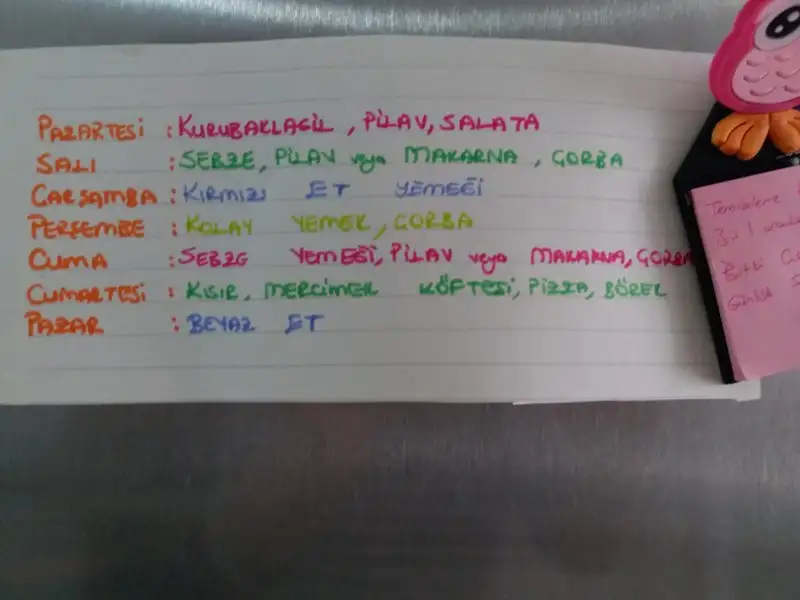 PAZARTESİ : KURUBAKLAGİL, PİLAV, SALATA
SALI : SEBZE, PİLAV veya MAKARNA, ÇORBA
ÇARŞAMBA : KIRMIZI ET YEMEĞİ
PERŞEMBE : KOLAY YEMEK, ÇORBA
CUMA : SEBZE YEMEĞİ, PİLAV veya MAKARNA, ÇORBA
CUMARTESİ : KISIR, MERCİMEK KÖFTESİ, PİZZA, BÖREK
PAZAR : BEYAZ ET